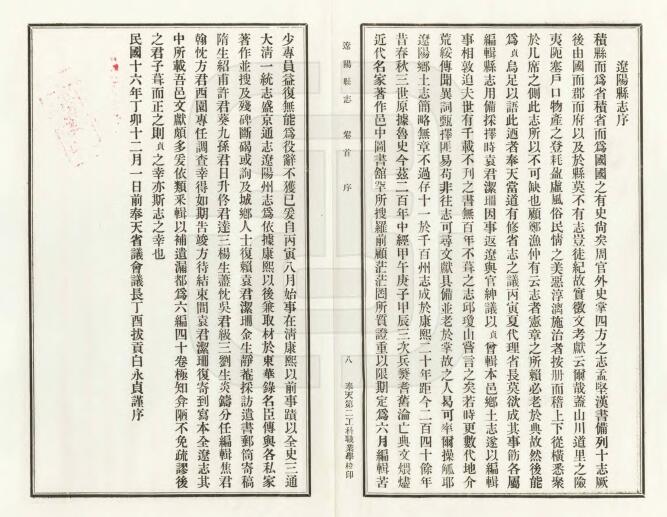 遼陽縣志序
積縣而爲省積省而爲國國之有史尙矣周官外史掌四方之志孟堅漢書備列十志厥
後由國而郡而府以及於縣莫不有志豈徒紀故實徵文考獻云爾哉蓋山川道里之險
夷阨塞戶口物產之登耗盈虛風俗民情之美惡淳漓施治者按册而稽上下從橫悉聚
於几席之側此志所以不可缺也顧鄭漁仲有云志者憲章之所賴必老於典故然後能
爲貞烏足以語此迺者奉天當道有修省志之議丙寅夏代理省長莫欲成其事飭各屬
編輯縣志用備採擇時袁君潔珊因事返遼與官紳議以貞曾輯本邑鄉土志遂以編輯
事相敦迫夫世有千載不刊之書無百年不葺之志邱瓊山嘗言之矣若時更數代地介
荒綏傳聞異詞甄擇匪易苟非往志可尋文獻具備並老於掌故之人易可率爾操觚耶
遼陽鄉土志簡略無章不過存十一於千百州志成於康熙二十年距今二百四十餘年
昔春秋三世原據魯史今茲二百年中經甲午庚子甲辰三次兵燹耆舊淪亡典文煨燼
近代名家著作邑中圖書館罕所搜羅前顧茫茫罔所質證重以限期定爲六月編輯苦
遼陽縣志 卷首 序
八 奉天第二工科職業學校印
少專員益復無能爲役辭不獲已爰自丙寅八月始事在淸康熙以前事蹟以全史三通
大淸一統志盛京通志遼陽州志爲依據康熙以後兼取材於東華錄名臣傳與各私家
著作並搜及殘碑斷碣或詢及城鄉人士復賴袁君潔珊金生靜菴採訪遺書郵筒寄稿
隋生紹甫許君葵九孫君日升佟君達三楊生藎忱吳君紱三劉生炎鑄分任編輯焦君
翰忱方君酉園專任調查幸得如期告竣方待結束間袁君潔珊復寄到寫本全遼志其
中所載吾邑文獻頗多爰依類釆輯以補遺漏都爲六編四十卷極知弇陋不免疏謬後
之君子葺而正之則貞之幸亦斯志之幸也
民國十六年丁卯十二月一日前奉天省議會議長丁酉拔貢白永貞謹序